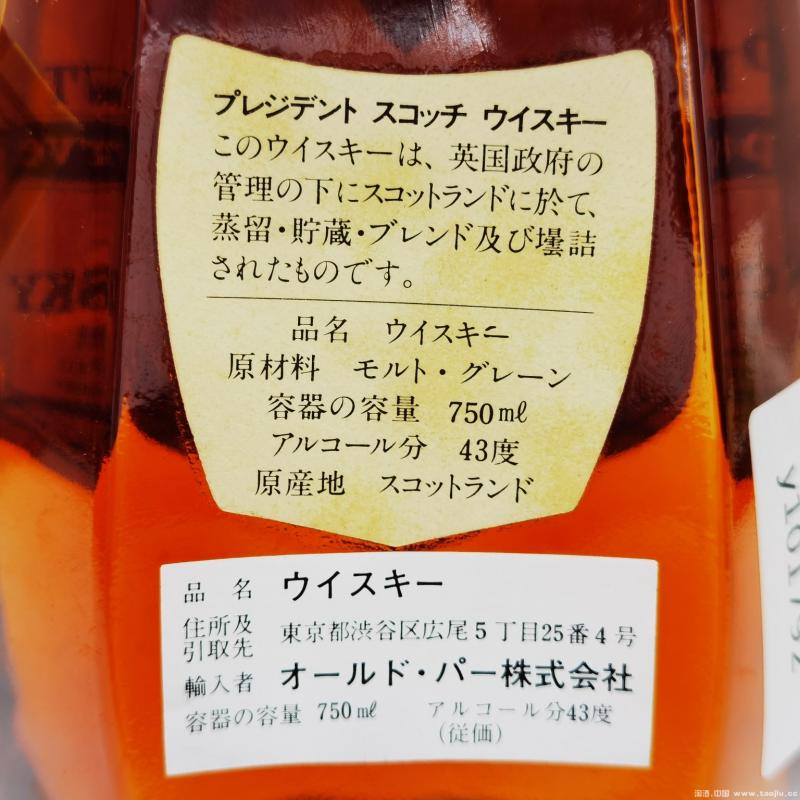 プレジデント スコッチ ウイスキー
このウイスキーは、英国政府の
管理の下にスコットランドに於て、
蒸留・貯蔵・ブレンド及び壜詰
されたものです。
品名 ウイスキー
原材料 モルト・グレーン
容器の容量 750㎖
アルコール分 43度
原産地 スコットランド
品名 ウイスキー
住所及引取先 東京都渋谷区広尾5丁目25番4号
輸入者 オールド・パー株式会社
容器の容量 750㎖ アルコール分43度
(従価)
淘酒.中国 www.taojiu.cc